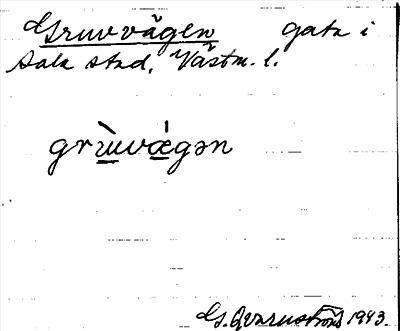 Gruvvägen gata i
Sala stad, Västm. l.
grùvǽgən
G. Qvarnström 1943.